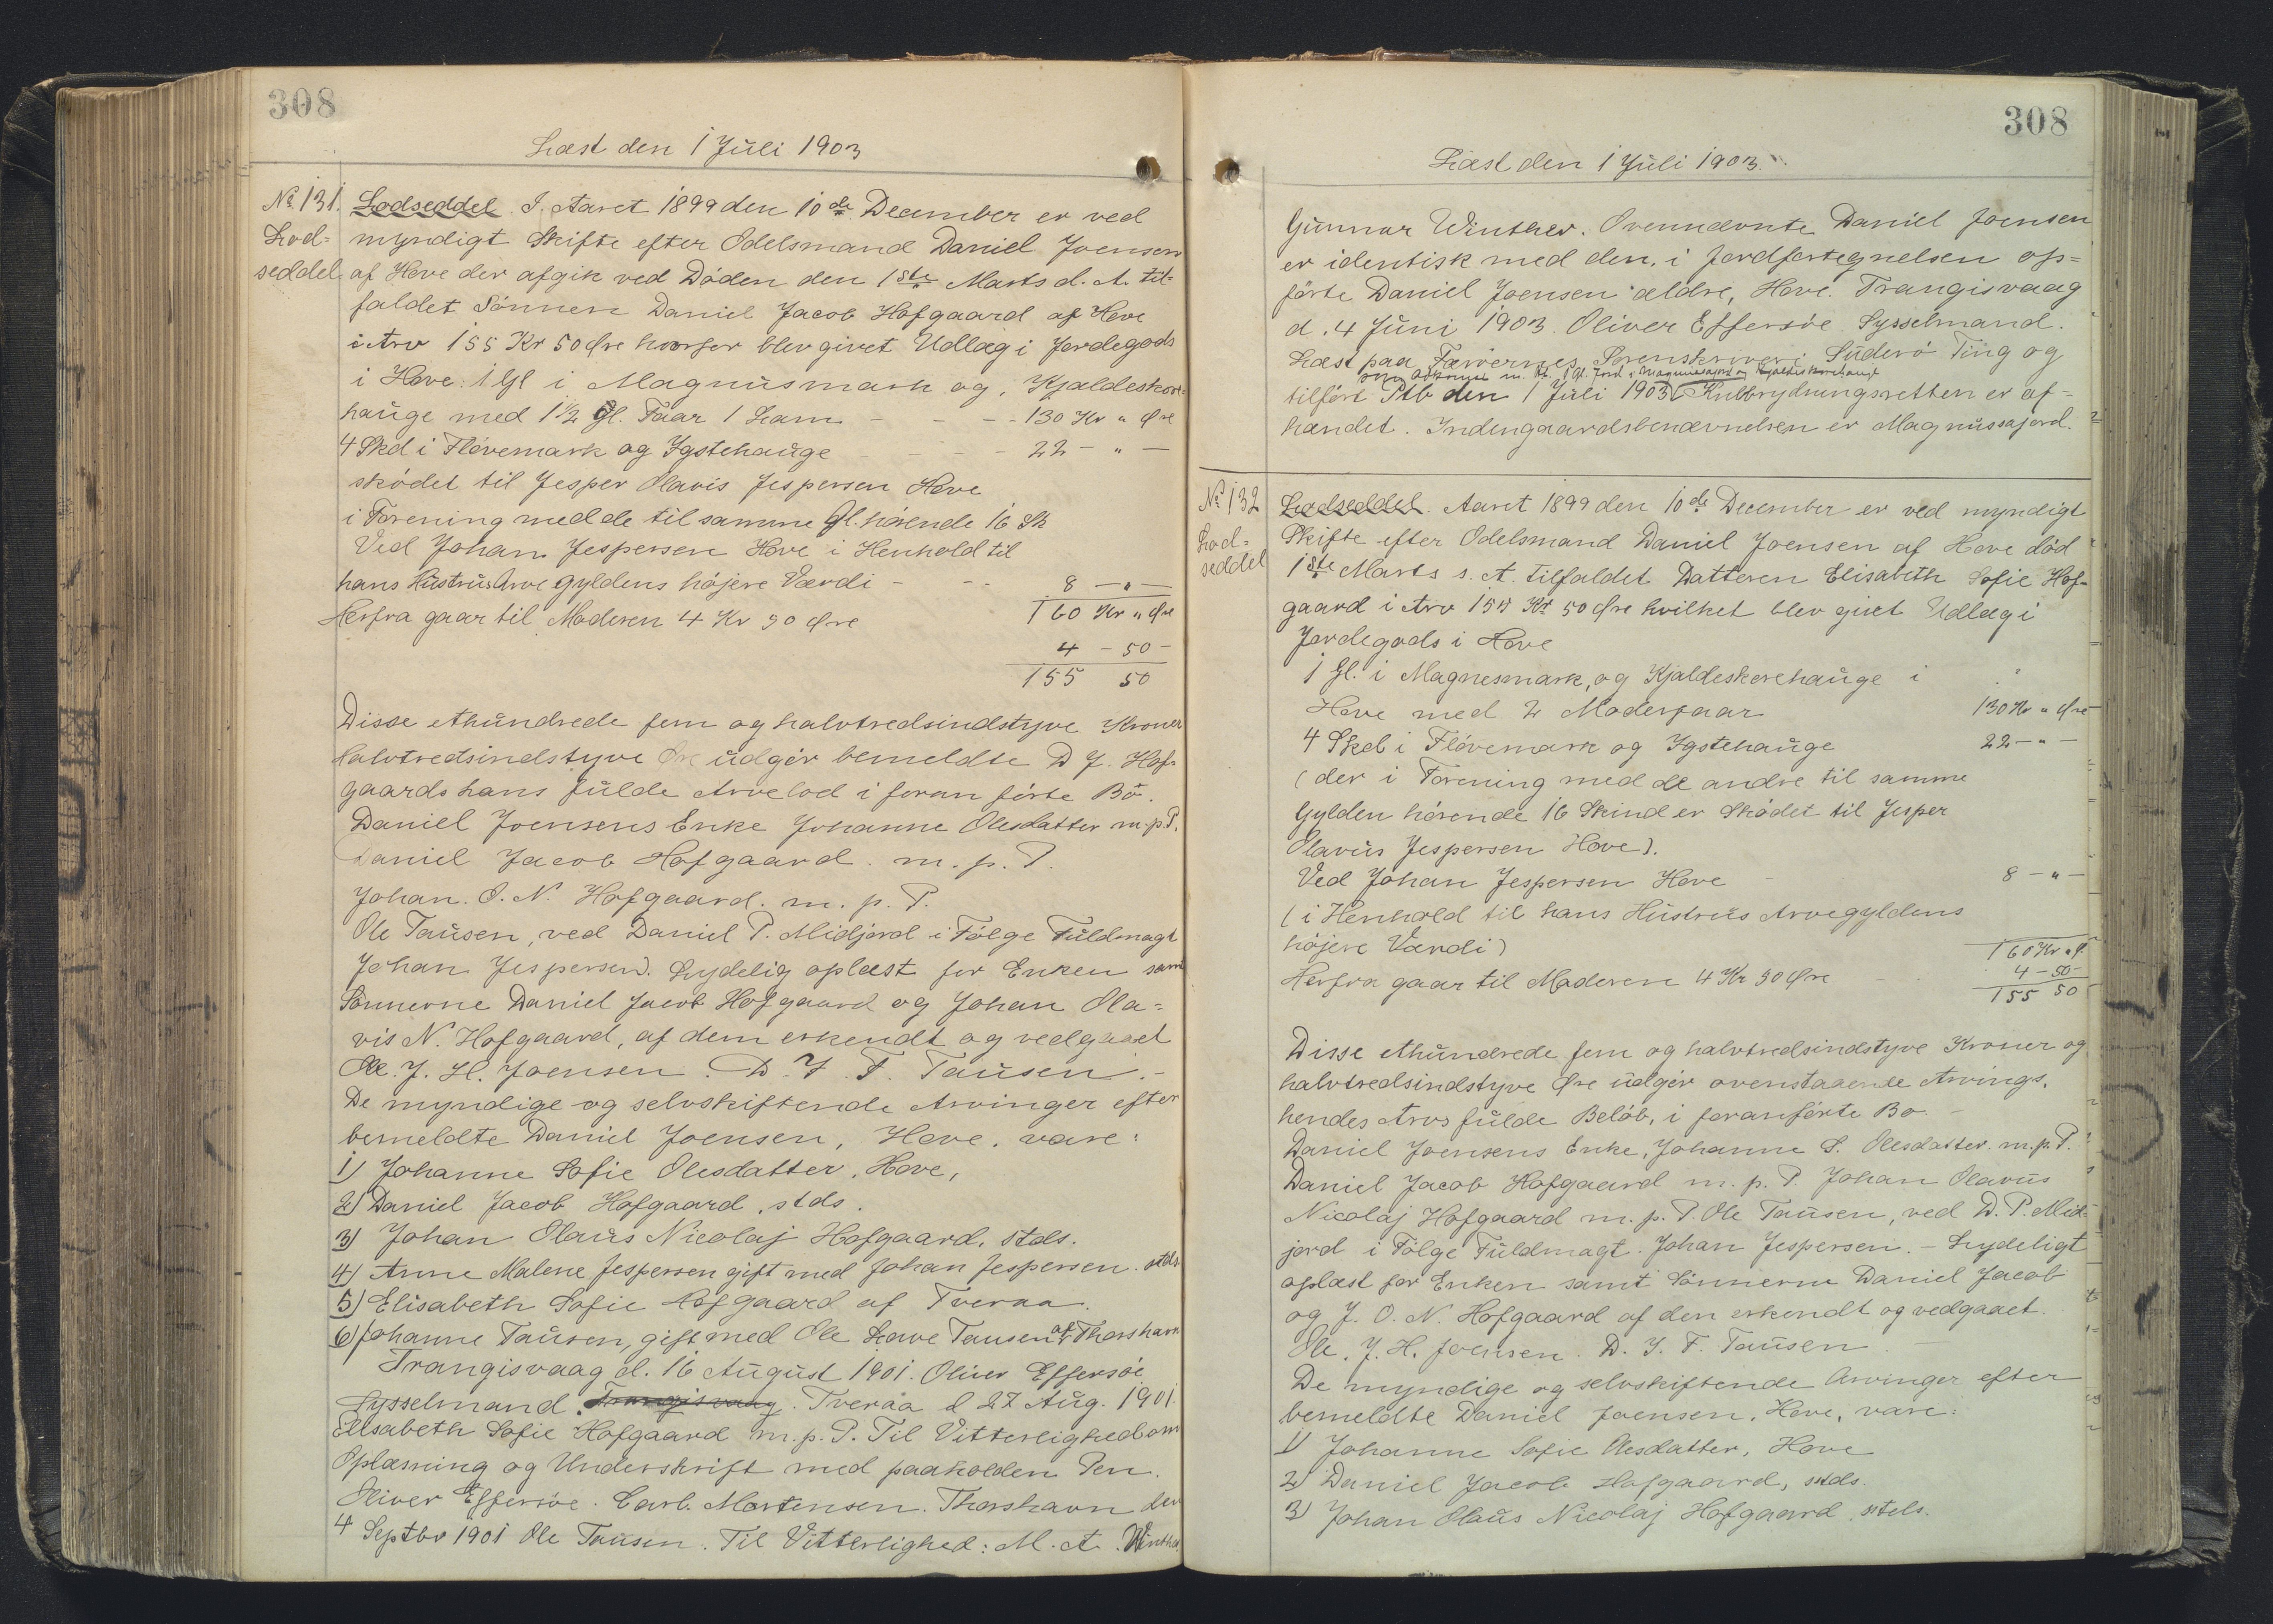 308
Læst den 1 Juli 1903
№ 131.
Lod-
seddel
Lodseddel. I Aaret 1899 den 10de December er ved
myndigt Skifte efter Odelsmand Daniel Joensen
af Hove der afgik ved Döden den 1ste Marts d. A. til-
faldet Sönnen Daniel Jacob Hofgaard af Hove
i Arv 155 Kr 50 Øre hvorfor blev givet Udlæg i Jordegods
i Hove: 1 Gl i Magnusmark og Kjaldeskore-
hauge med 1½ Gl. Faar 1 Lam - - - 130 Kr " Øre
4 Skd i Flövemark og Ygstehauge - - - 22 - " -
sködet til Jesper Olavis Jespersen Hove
i Forening med de til samme Gl. hörende 16 Sk
Ved Johan Jespersen Hove i Henhold til
hans Hustrus Arve Gyldens höjere Værdi - - - 8 - " -
160 Kr " Øre
Herfra gaar til Moderen 4 Kr 50 Øre
4 - 50 -
155 50
Disse ethundrede fem og halvtredsindstyve Kroner
halvtredsindstyve Øre udgör bemeldte D J. Hof-
gaards hans fulde Arvelod i foran förte Bo.
Daniel Joensens Enke Johanne Olesdatter m.p.P.
Daniel Jacob Hofgaard. m. p. P.
Johan. O. N. Hofgaard. m. p. P.
Ole Tausen, ved Daniel P. Midjord i Fölge Fuldmagt
Johan Jespersen. Lydelig oplæst for Enken samt
Sönnerne Daniel Jacob Hofgaard og Johan Ola-
vis N. Hofgaard, af dem erkendt og vedgaaet
Ole. J. H. Joensen. D. J. F. Tausen.-
De myndige og selvskiftende Arvinger efter
bemeldte Daniel Joensen, Hove. vare:
1) Johanne Sofie Olesdatter, Hove,
2) Daniel Jacob Hofgaard, stds.
3) Johan Olaus Nicolaj Hofgaard, stds.
4) Anne Malene Jespersen gift med Johan Jespersen. stds
5) Elisabeth Sofie Hofgaard af Tveraa.
6) Johanne Tausen, gift med Ole Lave Tausen af Thorshavn.
Trangisvaag d. 16 August 1901. Oliver Effersöe
Sysselmand. Trangisvaag. Tveraa d 27 Aug. 1901.
Elisabeth Sofie Hofgaard m. p. P. Til Vitterlighed om
Oplæsning og Underskrift med paaholden Pen.
Oliver Effersöe. Carl. Mortensen. Thorshavn den
4 Septbr 1901 Ole Tausen. Til Vitterlighed: M. A. Winther
308
Læst den 1 Juli 1903.
Gunnar Winther. Ovennævnte Daniel Joensen
er identisk med den i Jordfortegnelsen op-
förte Daniel Joensen ældre, Hove. Trangisvaag
d. 4 Juni 1903. Oliver Effersöe Sysselmand.
Læst paa Færöernes Sorenskriveri Suderö Ting og
som Adkomst m. H. t. 1 Gl. Jord i Magnusajord og Kjaldeskorehauge
tilfört Ptb den 1 Juli 1903. Kulbrydningsretten er af-
hændet. Indengaardsbenævnelsen er Magnussajord.
№ 132
Lod-
seddel
Lodseddel. Aaret 1899 den 10de December er ved myndigt
Skifte efter Odelsmand Daniel Joensen af Hove död
1ste Marts s. A. tilfaldet Datteren Elisabeth Sofie Hof-
gaard i Arv 155 Kr 50 Øre hvilket blev givet Udlæg i
Jordegods i Hove
1 Gl. i Magnesmark, og Kjaldeskorehauge i
Hove med 2 Moderfaar 130 Kr " Øre
4 Skd i Flövemark og Ygstehauge 22 - " -
(der i Forening med de andre til samme
Gylden hörende 16 Skind er Sködet til Jesper
Olavus Jespersen Hove).
Ved Johan Jespersen Hove - 8 - " -
(i Henhold til hans Hustrus Arvegyldens
höjere Værdi) 160 Kr " Ø.
4 - 50 -
Herfra gaar til Moderen 4 Kr 50 Øre
155 50
Disse ethundrede fem og halvtredsindstyve Kroner og
halvtredsindstyve Øre udgör ovenstaaende Arvings,
hendes Arvs fulde Belöb, i foranförte Bo. -
Daniel Joensens Enke, Johanne S. Olesdatter m.p.P.
Daniel Jacob Hofgaard m. p. P. Johan Olavus
Nicolaj Hofgaard m. p. P. Ole Tausen, ved D. P. Mid-
jord i Fölge Fuldmagt. Johan Jespersen. - Lydeligt
oplæst for Enken samt Sönnerne Daniel Jacob
og J. O. N. Hofgaard af den erkendt og vedgaaet.
Ole. J. H. Joensen. D. J. F. Tausen.
De myndige og selvskiftende Arvinger efter
bemeldte Daniel Joensen, Hove, vare:
1) Johanne Sofie Olesdatter, Hove
2) Daniel Jacob Hofgaard, stds.
3) Johan Olaus Nicolaj Hofgaard, stds.